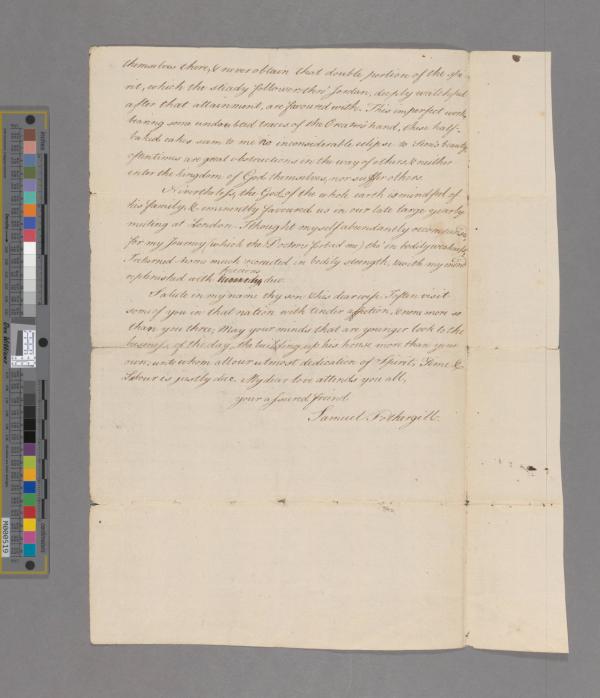 themselves there, & never obtain that double portion of the spi-
rit, which the steady follower thro' Jordan, deeply watchful
after that attainment, are favoured with. This imperfect work,
bearing some undoubted traces of the Creator's hand, these half-
baked cakes seem to me no inconsiderable eclipse to Sion's beauty
oftentimes are great obstructions in the way of others & neither
enter the kingdom of God themselves, nor suffer others.
Nevertheless, the God of the whole earth is mindful of
his family, & eminently favoured us in our late large yearly
meeting at London. I thought myself abundantly recompensed
for my Journey (which the Doctors forbad me) tho' in bodily weakness,
I returned home much recruited in bodily strength & with my mind
replenished with
heavenly dew.
Salute in my name thy son & his dear wife. I often visit
some of you in that nation with tender affection, & none more so
than you three; May your minds that are younger look to the
business of the day, the building up his house more than your
own; unto whom all our utmost dedication of Spirit, Time &
Labour is justly due. My dear love attends you all,
your assured friend
Samuel Fothergill.